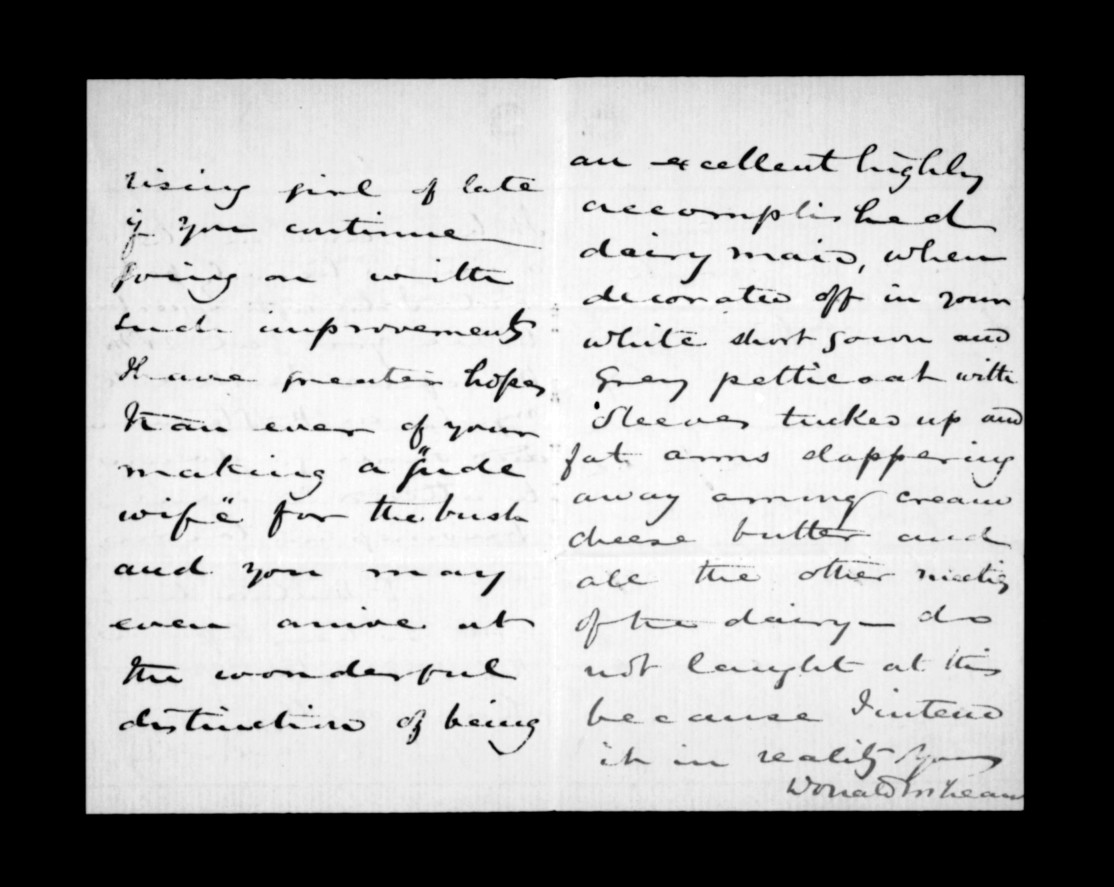 rising girl of late
if you continue
going on with
such improvements
I have greater hopes
than ever of your
making a "gude
wife" for the bush
and you may
even arrive at
the wonderful
distinction of being
an excellent highly
accomplished
dairy maid, when
decorated off in your
white short gown and
Grey petticoat with
sleeves tucked up and
fat arms slappering
away among cream
cheese butter and
all the other
of the dairy — do
not laught at this
because I intend
it in reality Yours
Donald McLean